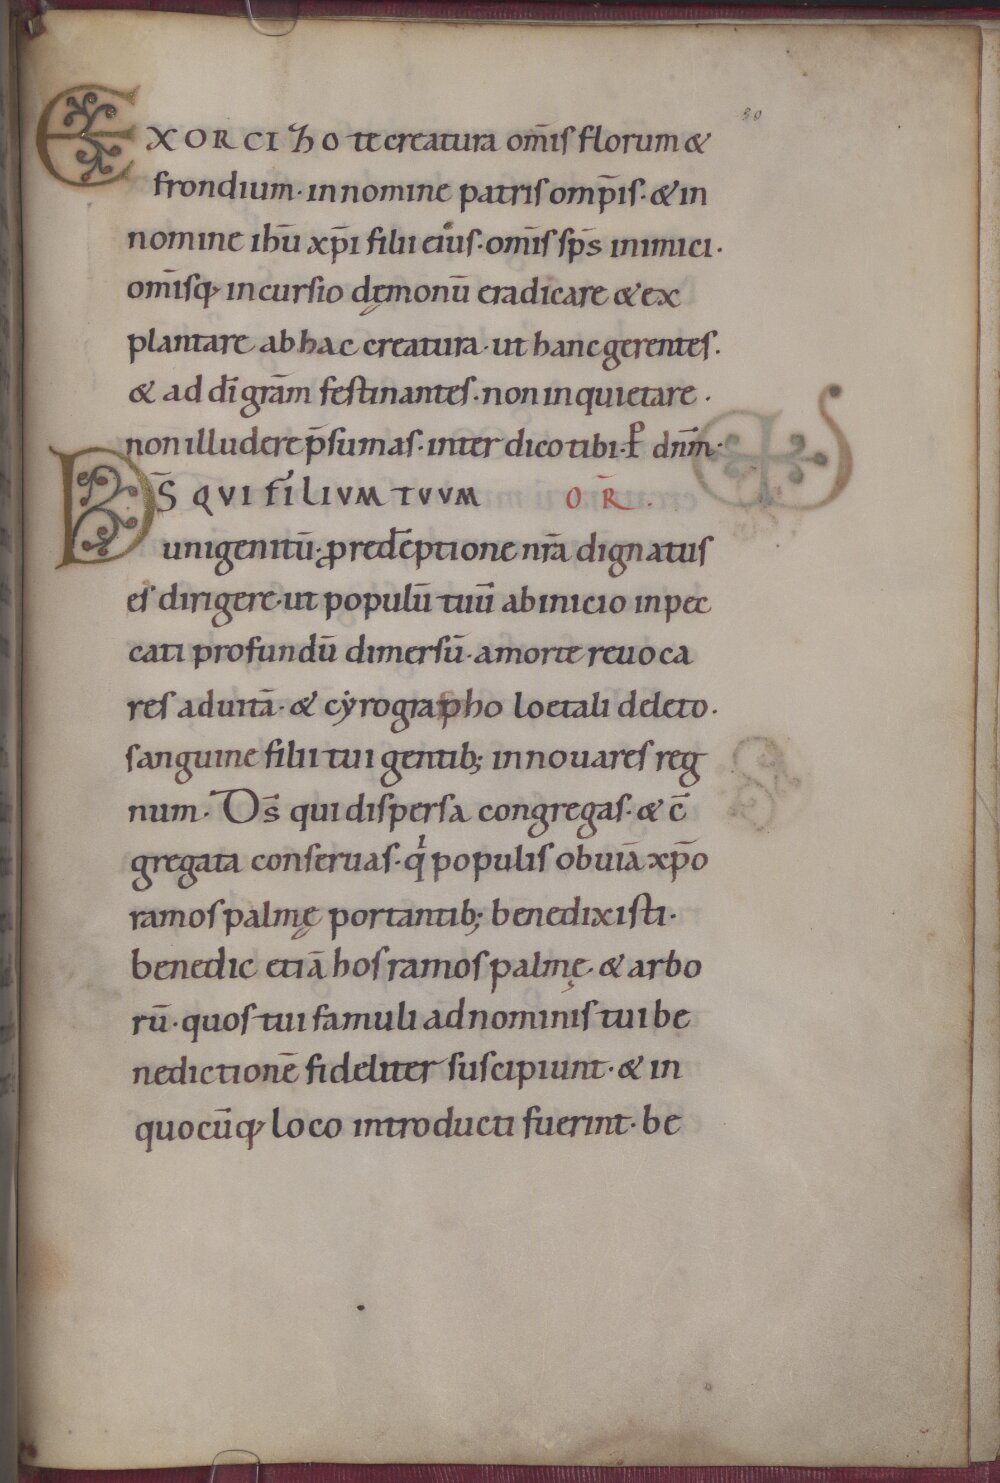 30
EXORCIZO te creatura om̄is florum &
frondium· in nomine patris omp̄is· & in
nomine ih̄u xp̄i filii eius· om̄is sp̄s inimici·
om̄isq· incursio dęmonū eradicare & ex
plantare ab hac creatura· ut hanc gerentes·
& ad d̄i grām festinantes· non inquietare·
non illudere p̄sumas· inter dico tibi· P̄ dn̄m·
DS̄ QVI FILIVM TVVM OR̄.
unigenitū· ꝓ redēptione nr̄a dignatus
es dirigere· ut populū tuū ab inicio in pec
cati profundū dimersū· a morte reuoca
res ad uitā· & cẏrographo loetali deleto·
sanguine filii tui gentib; innouares reg
num· Ds̄ qui dispersa congregas· & c̄
gregata conseruas· qͥ populis obuiā xp̄o
ramos palmę portantib; benedixisti·
benedic etiā hos ramos palmę· & arbo
rū· quos tui famuli ad nominis tui be
nedictionē fideliter suscipiunt· & in
quocūq· loco introducti fuerint· be